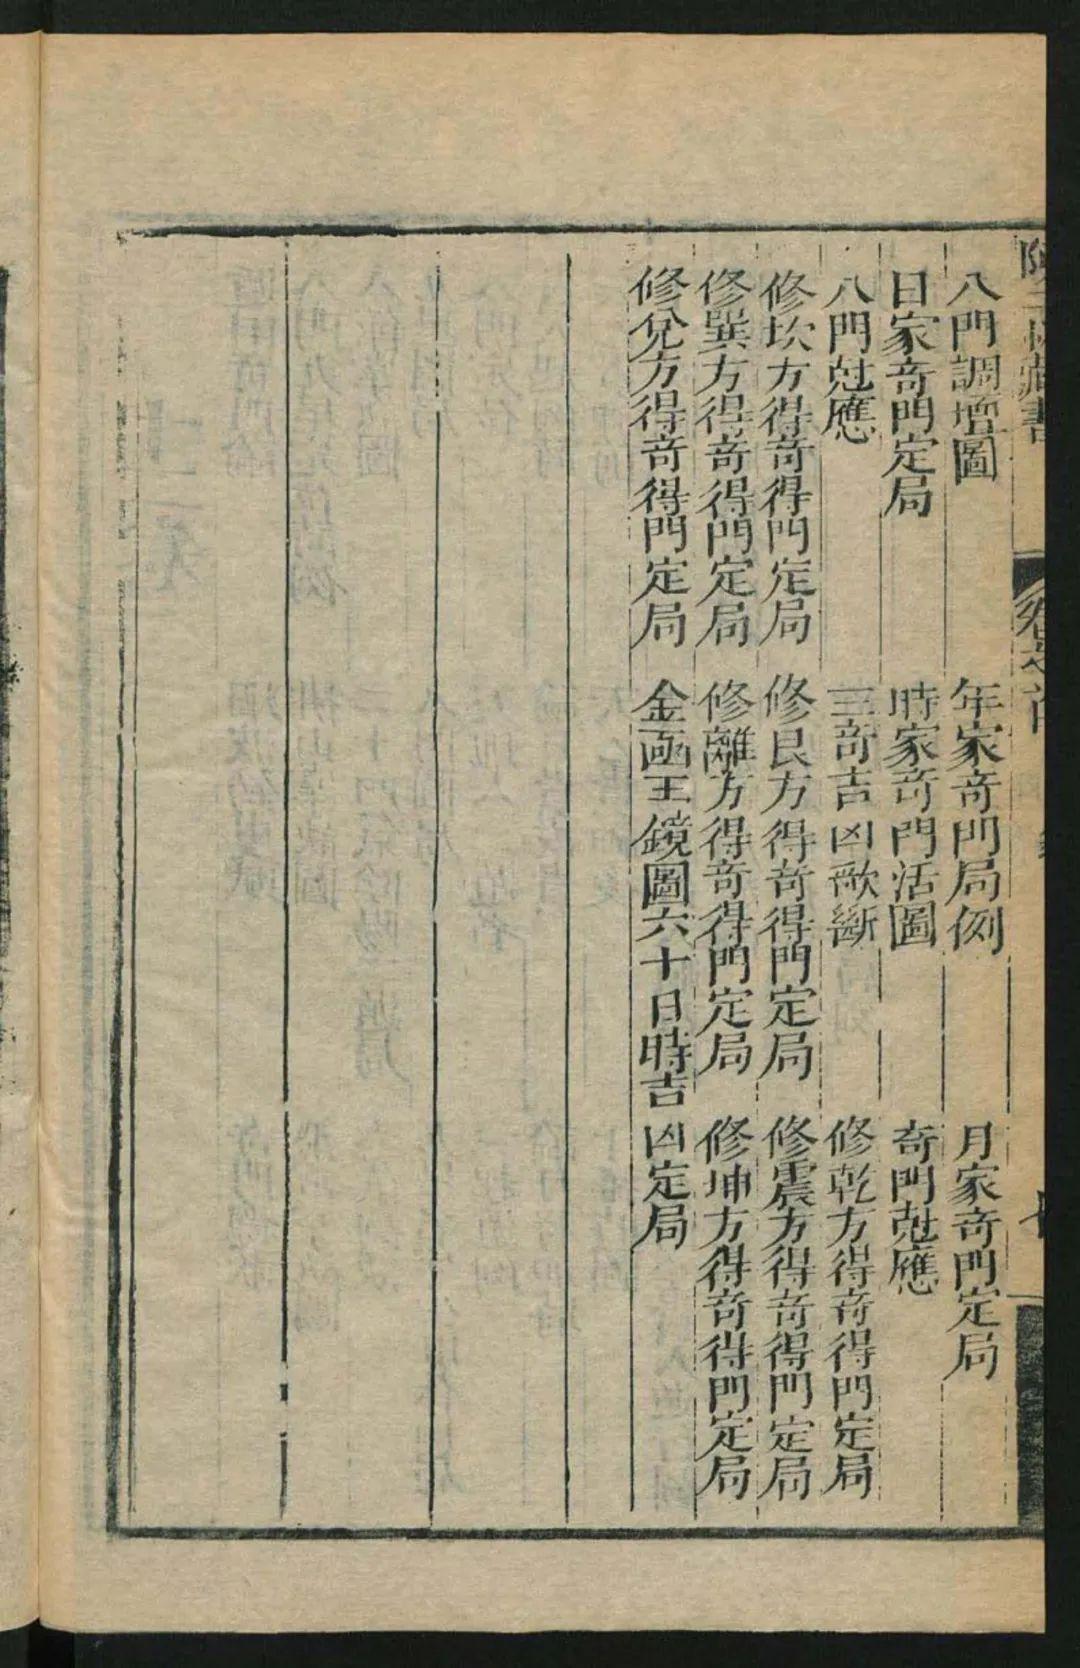 八門調壇圖　年家奇門局例　月家奇門定局
日家奇門定局　時家奇門活圖　奇門尅應
八門尅應　三奇吉凶歌斷　修乾方得奇得門定局
修坎方得奇得門定局　修艮方得奇得門定局　修震方得奇得門定局
修巽方得奇得門定局　修離方得奇得門定局　修坤方得奇得門定局
修兌方得奇得門定局　金函玉鏡圖六十日時吉凶定局